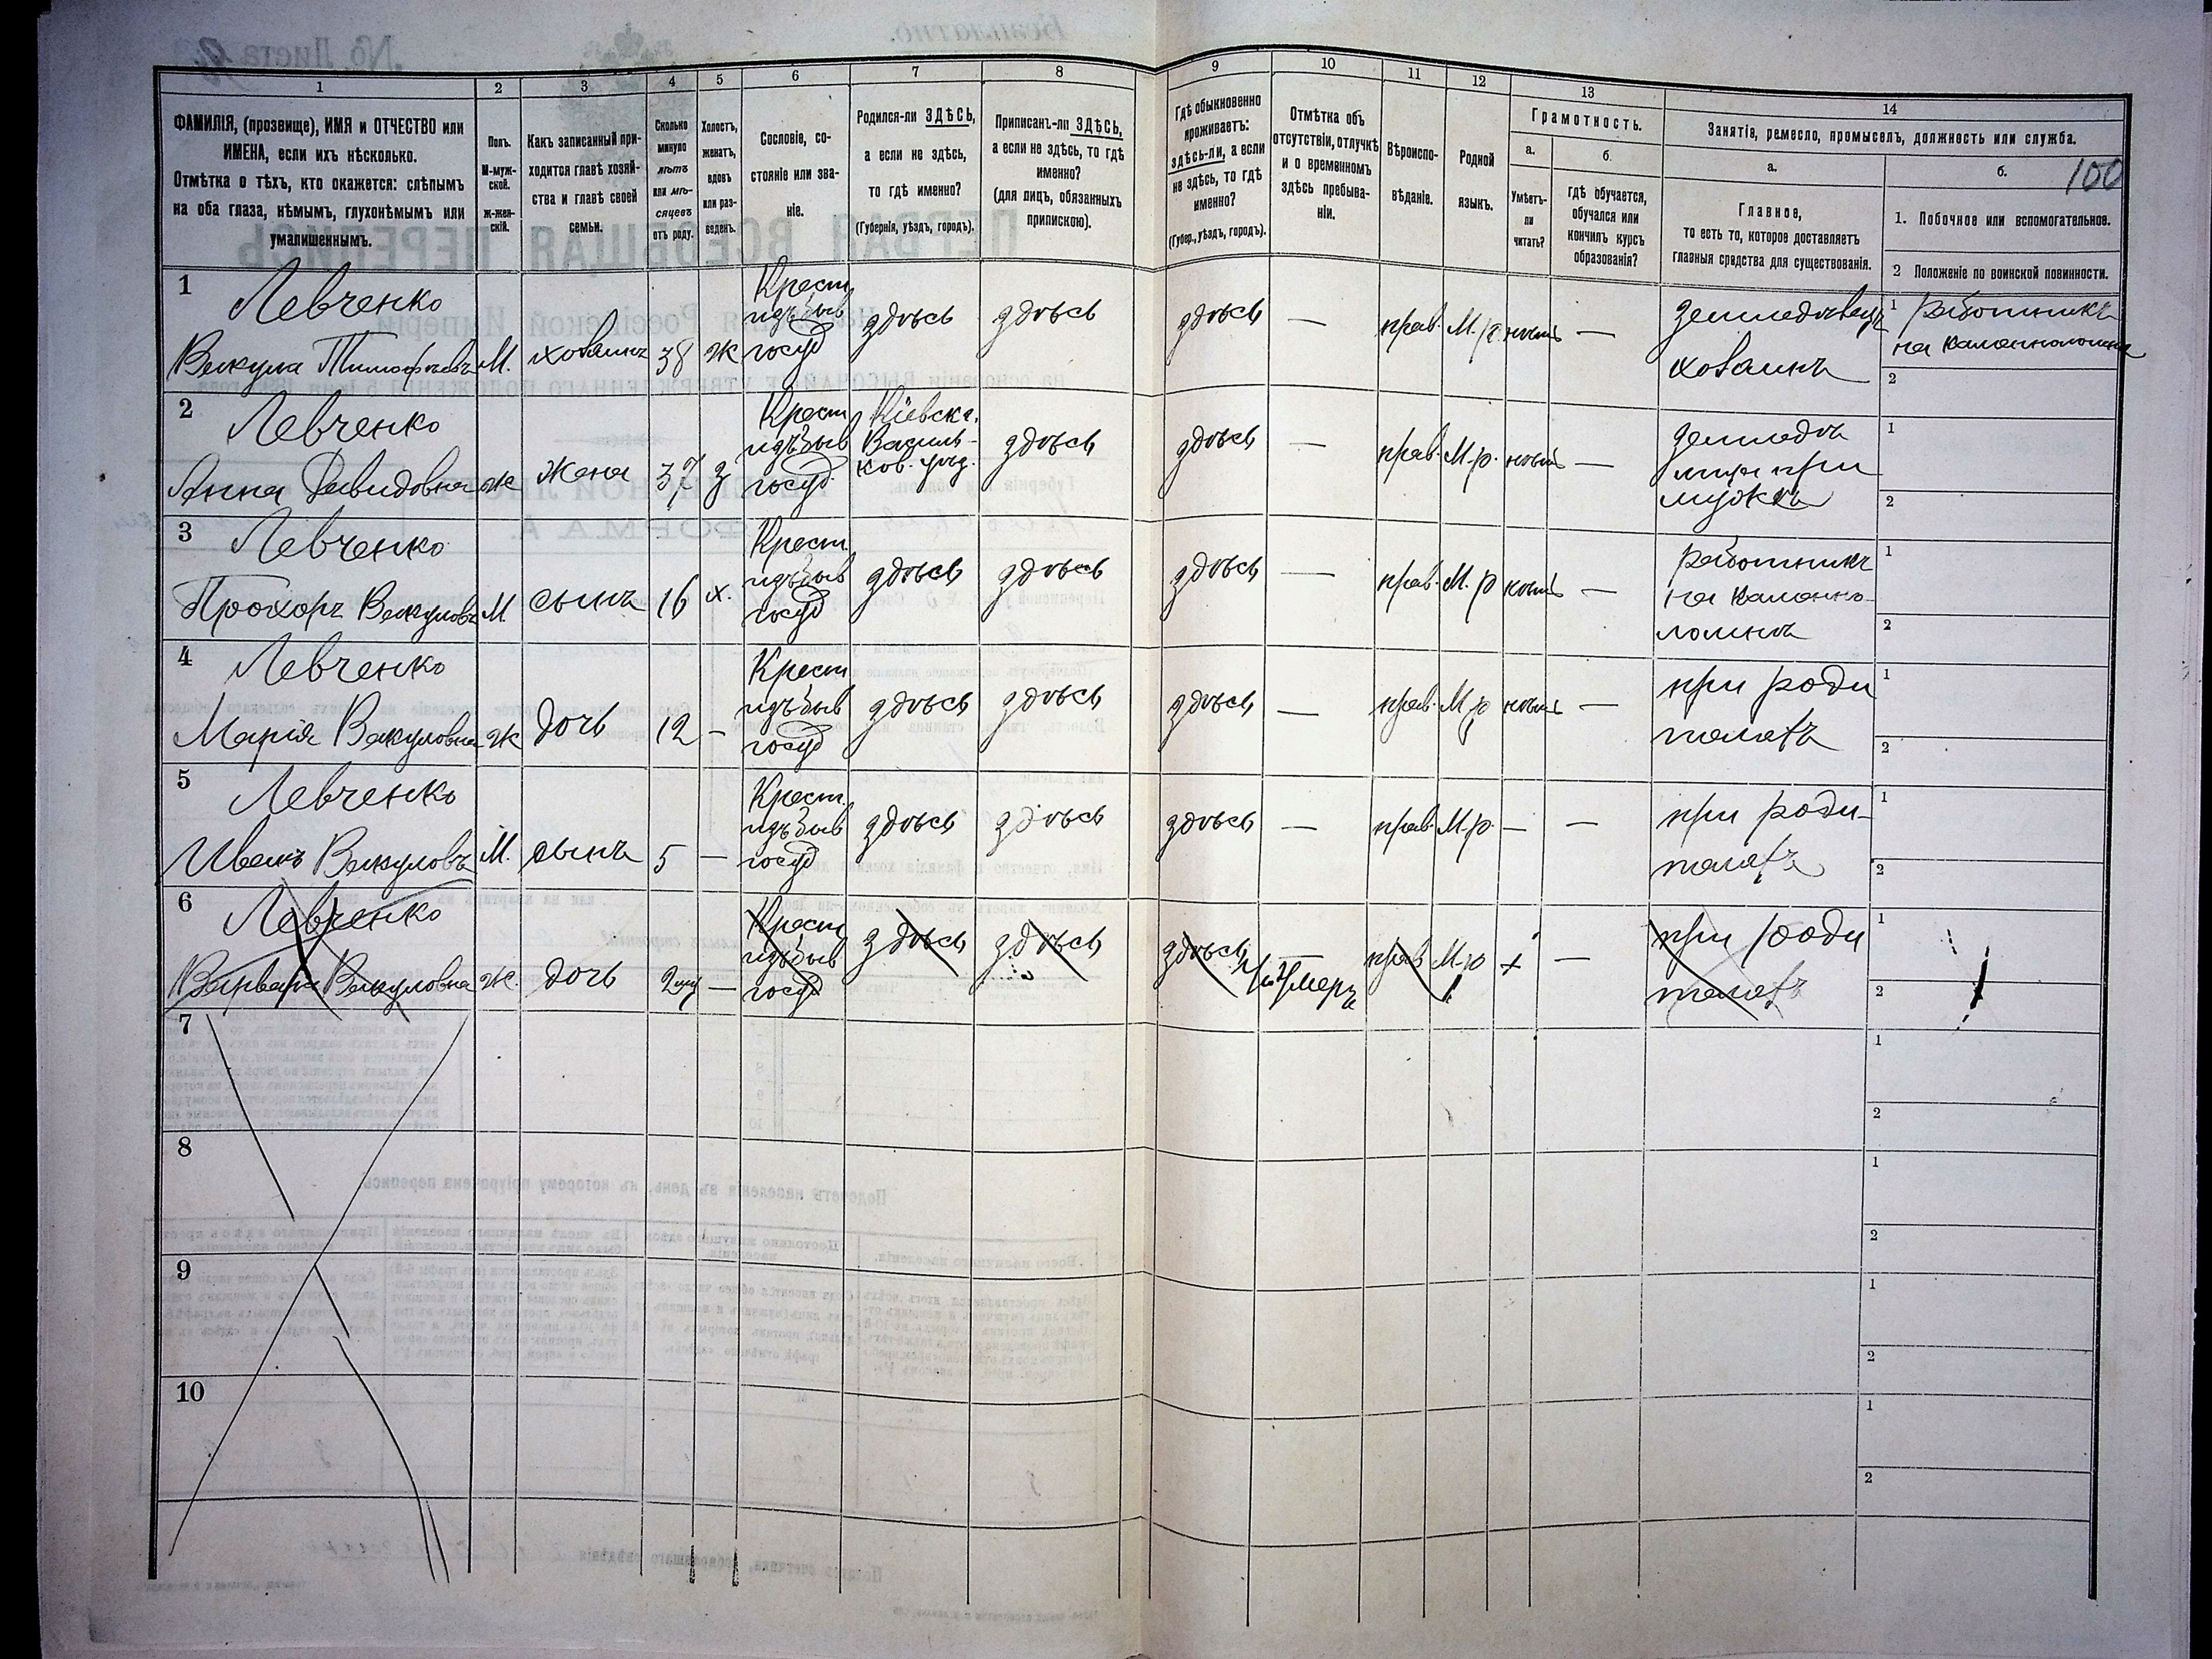 1 2 3 4 5 6 7 8 9 10 11 12 13 14
ФАМИЛІЯ, (прозвище), ИМЯ и ОТЧЕСТВО или
ИМЕНА, если ихъ нѣсколько.
Отмѣтка о тѣхъ, кто окажется: слѣпымъ
на оба глаза, нѣмымъ, глухонѣмымъ или
умалишеннымъ.
Полъ.
М-муж-
ской.
ж-жен-
скій.
Какъ записанный при-
ходится главѣ хозяй-
ства и главѣ своей
семьи.
Сколько
минуло
лѣтъ
или мѣ-
сяцевъ
отъ роду.
Холостъ,
женатъ,
вдовъ
или раз-
веденъ.
Сословіе, со-
стояніе или зва-
ніе.
Родился-ли ЗДѢСЬ,
а если не здѣсь,
то гдѣ именно?
(Губернія, уѣздъ, городъ).
Приписанъ-ли ЗДѢСЬ,
а если не здѣсь, то гдѣ
именно?
(для лицъ, обязанныхъ
припискою).
Гдѣ обыкновенно
проживаетъ:
здѣсь-ли, а если
не здѣсь, то гдѣ
именно?
(Губер., уѣздъ, городъ).
Отмѣтка объ
отсутствіи, отлучкѣ
и о временномъ
здѣсь пребыва-
ніи.
Вѣроиспо-
вѣданіе.
Родной
языкъ.
Грамотность.
а.
Умѣетъ-
ли
читать?
б.
гдѣ обучается,
обучался или
кончилъ курсъ
образованія?
Занятіе, ремесло, промыселъ, должность или служба.
а.
Главное,
то есть то, которое доставляетъ
главныя средства для существованія.
б.
100
1. Побочное или вспомогательное.
2 Положеніе по воинской повинности.
1 Левченко
Вакула Тимофѣевъ М. хозяинъ 38 ж
Крест
изъ быв
госуд
здѣсь здѣсь здѣсь — прав. М.р. нѣтъ —
земледѣлецъ
хозяинъ
1 работникъ
на каменоломнѣ
2
2 Левченко
Анна Давидовна ж жена 37 з
Крест
изъ быв
госуд
Кіевска.
Василь-
ков. уѣз.
здѣсь здѣсь — прав. М.р. нѣтъ —
земледѣ
лица при
мужѣ
1
2
3 Левченко
Прохоръ Вакуловъ М. сынъ 16 х.
Крест.
изъ быв
госуд
здѣсь здѣсь здѣсь — прав. М.р нѣтъ —
работникъ
на камено-
ломнѣ
1
2
4 Левченко
Марія Вакуловна ж дочь 12 —
Крест
изъ быв
госуд
здѣсь здѣсь здѣсь — прав. М.р нѣтъ —
при роди
теляхъ
1
2
5 Левченко
Иванъ Вакуловъ М. сынъ 5 —
Крест.
изъ быв
госуд
здѣсь здѣсь здѣсь — прав. М.р. — —
при роди-
теляхъ
1
2
6 Левченко
Варвара Вакуловна ж. дочь —
Крест
изъ быв
госуд
здѣсь здѣсь здѣсь умеръ прав М.р + —
при роди
теляхъ
1
2
7
1
2
8
1
2
9
1
2
10
1
2